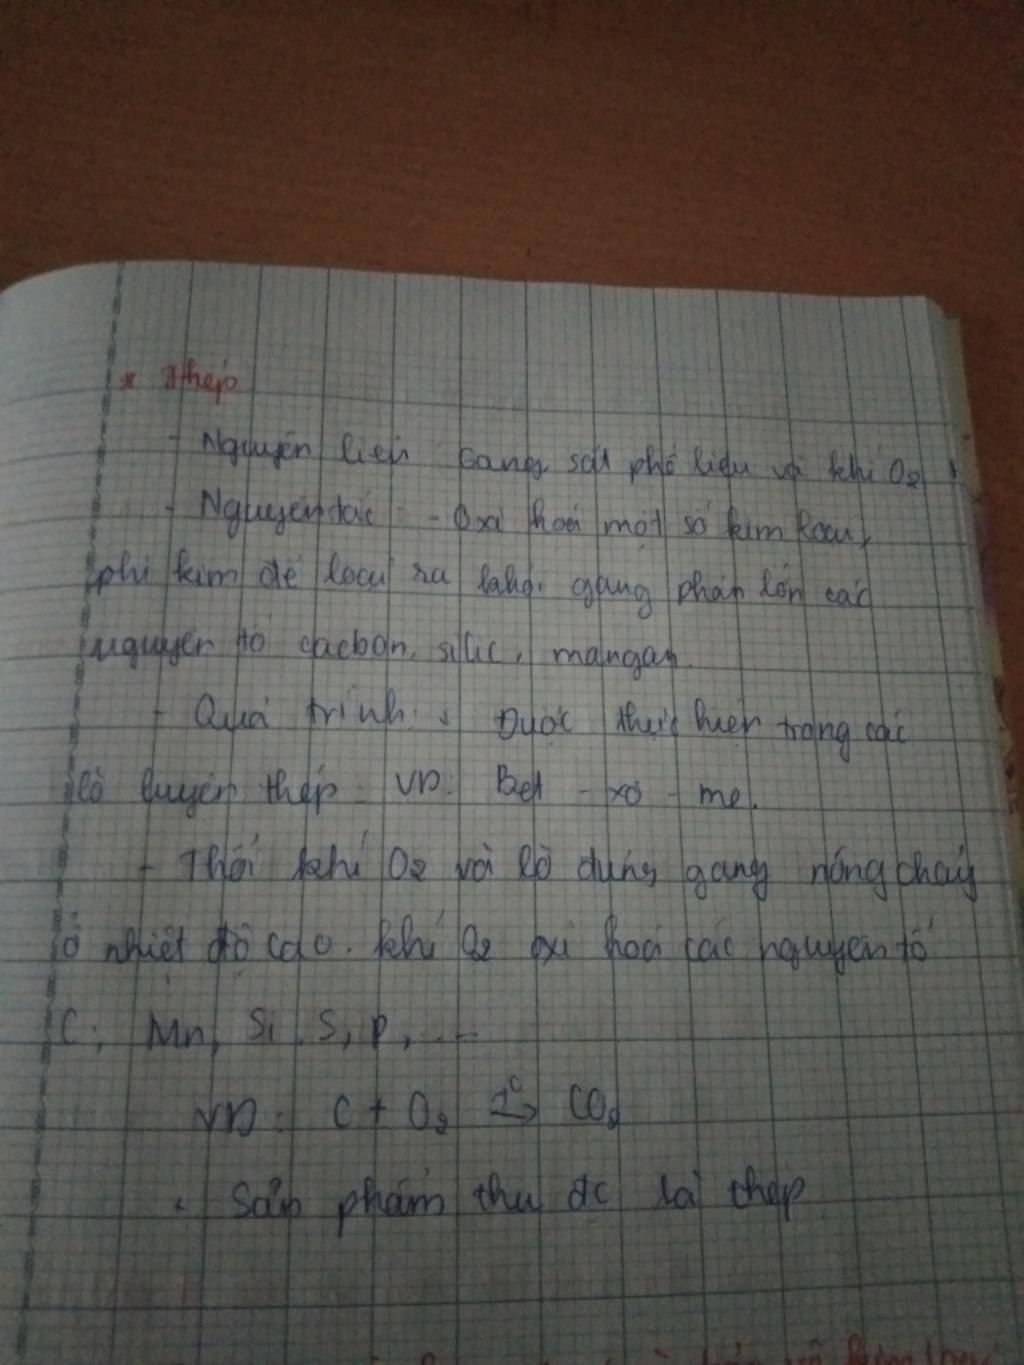 * Thép
- Nguyên liệu Gang sắt phế liệu và khí O2
- Nguyên tắc: - Oxi hoá một số kim loại,
phi kim để loại ra gang phần lớn các
nguyên tố cacbon, silic, mangan.
- Quá trình: Được thực hiện trong các
lò luyện thép. VD: Bet - xơ - me.
- Thổi khí O2 vào lò đựng gang nóng chảy
ở nhiệt độ cao. khí O2 oxi hoá các nguyên tố
C, Mn, Si, S, P, ...
VD: C + O2 t°→ CO2
- Sản phẩm thu đc là thép